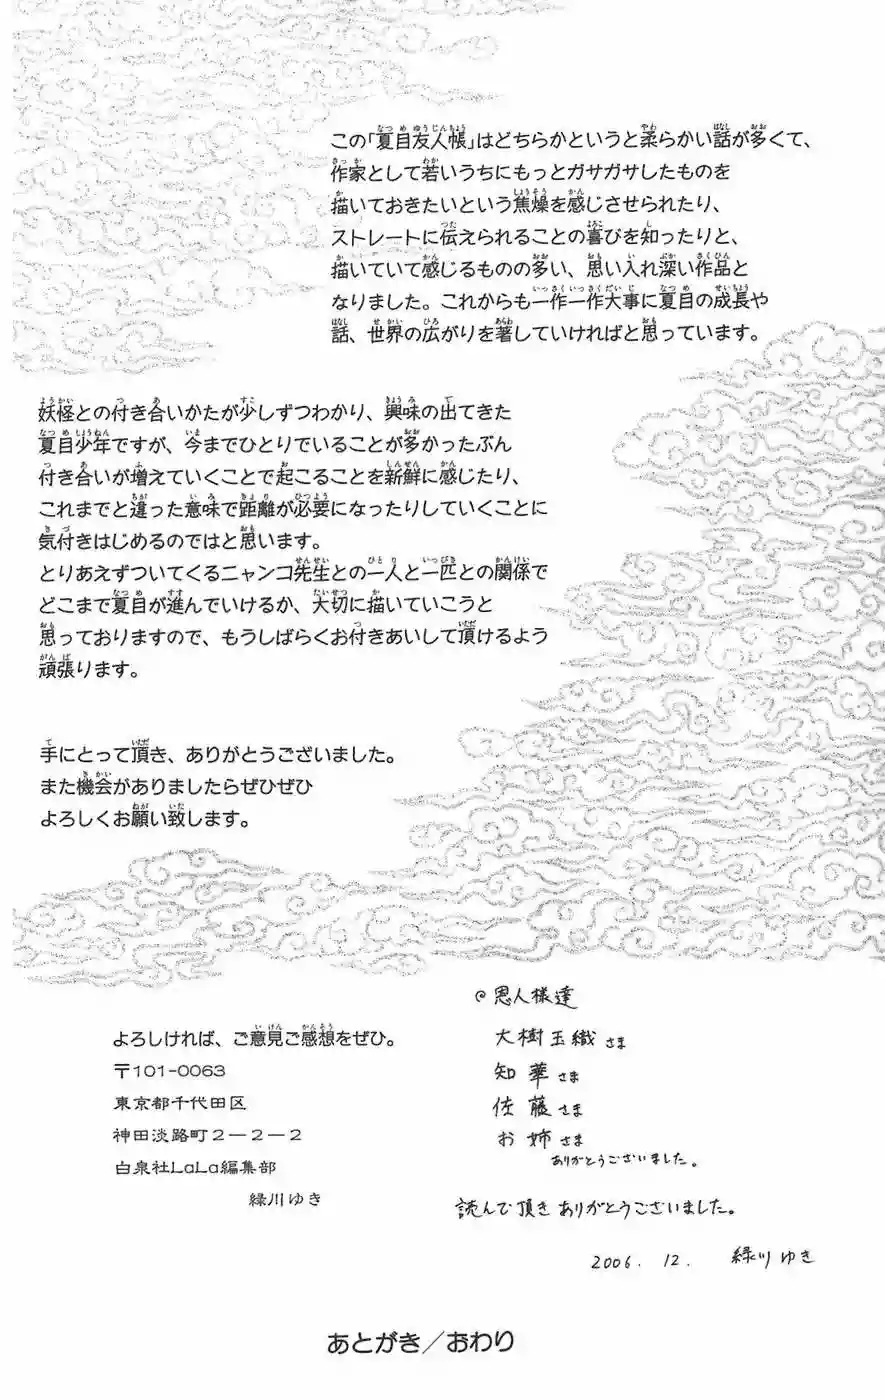 この「夏目友人帳」はどちらかというと柔らかい話が多くて、
作家として若いうちにもっとガサガサしたものを
描いておきたいという焦燥を感じさせられたり、
ストレートに伝えられることの喜びを知ったりと、
描いていて感じるものの多い、思い入れ深い作品と
なりました。これからも一作一作大事に夏目の成長や
話、世界の広がりを著していければと思っています。
妖怪との付き合いかたが少しずつわかり、興味の出てきた
夏目少年ですが、今までひとりでいることが多かったぶん
付き合いが増えていくことで起こることを新鮮に感じたり、
これまでと違った意味で距離が必要になったりしていくことに
気付きはじめるのではと思います。
とりあえずついてくるニャンコ先生との一人と一匹との関係で
どこまで夏目が進んでいけるか、大切に描いていこうと
思っておりますので、もうしばらくお付きあいして頂けるよう
頑張ります。
手にとって頂き、ありがとうございました。
また機会がありましたらぜひぜひ
よろしくお願い致します。
よろしければ、ご意見ご感想をぜひ。
〒101-0063
東京都千代田区
神田淡路町2－2－2
白泉社LaLa編集部
緑川ゆき
恩人様達
大樹玉織さま
知華さま
佐藤さま
お姉さま
ありがとうございました。
読んで頂きありがとうございました。
2006. 12. 緑川ゆき
あとがき／おわり